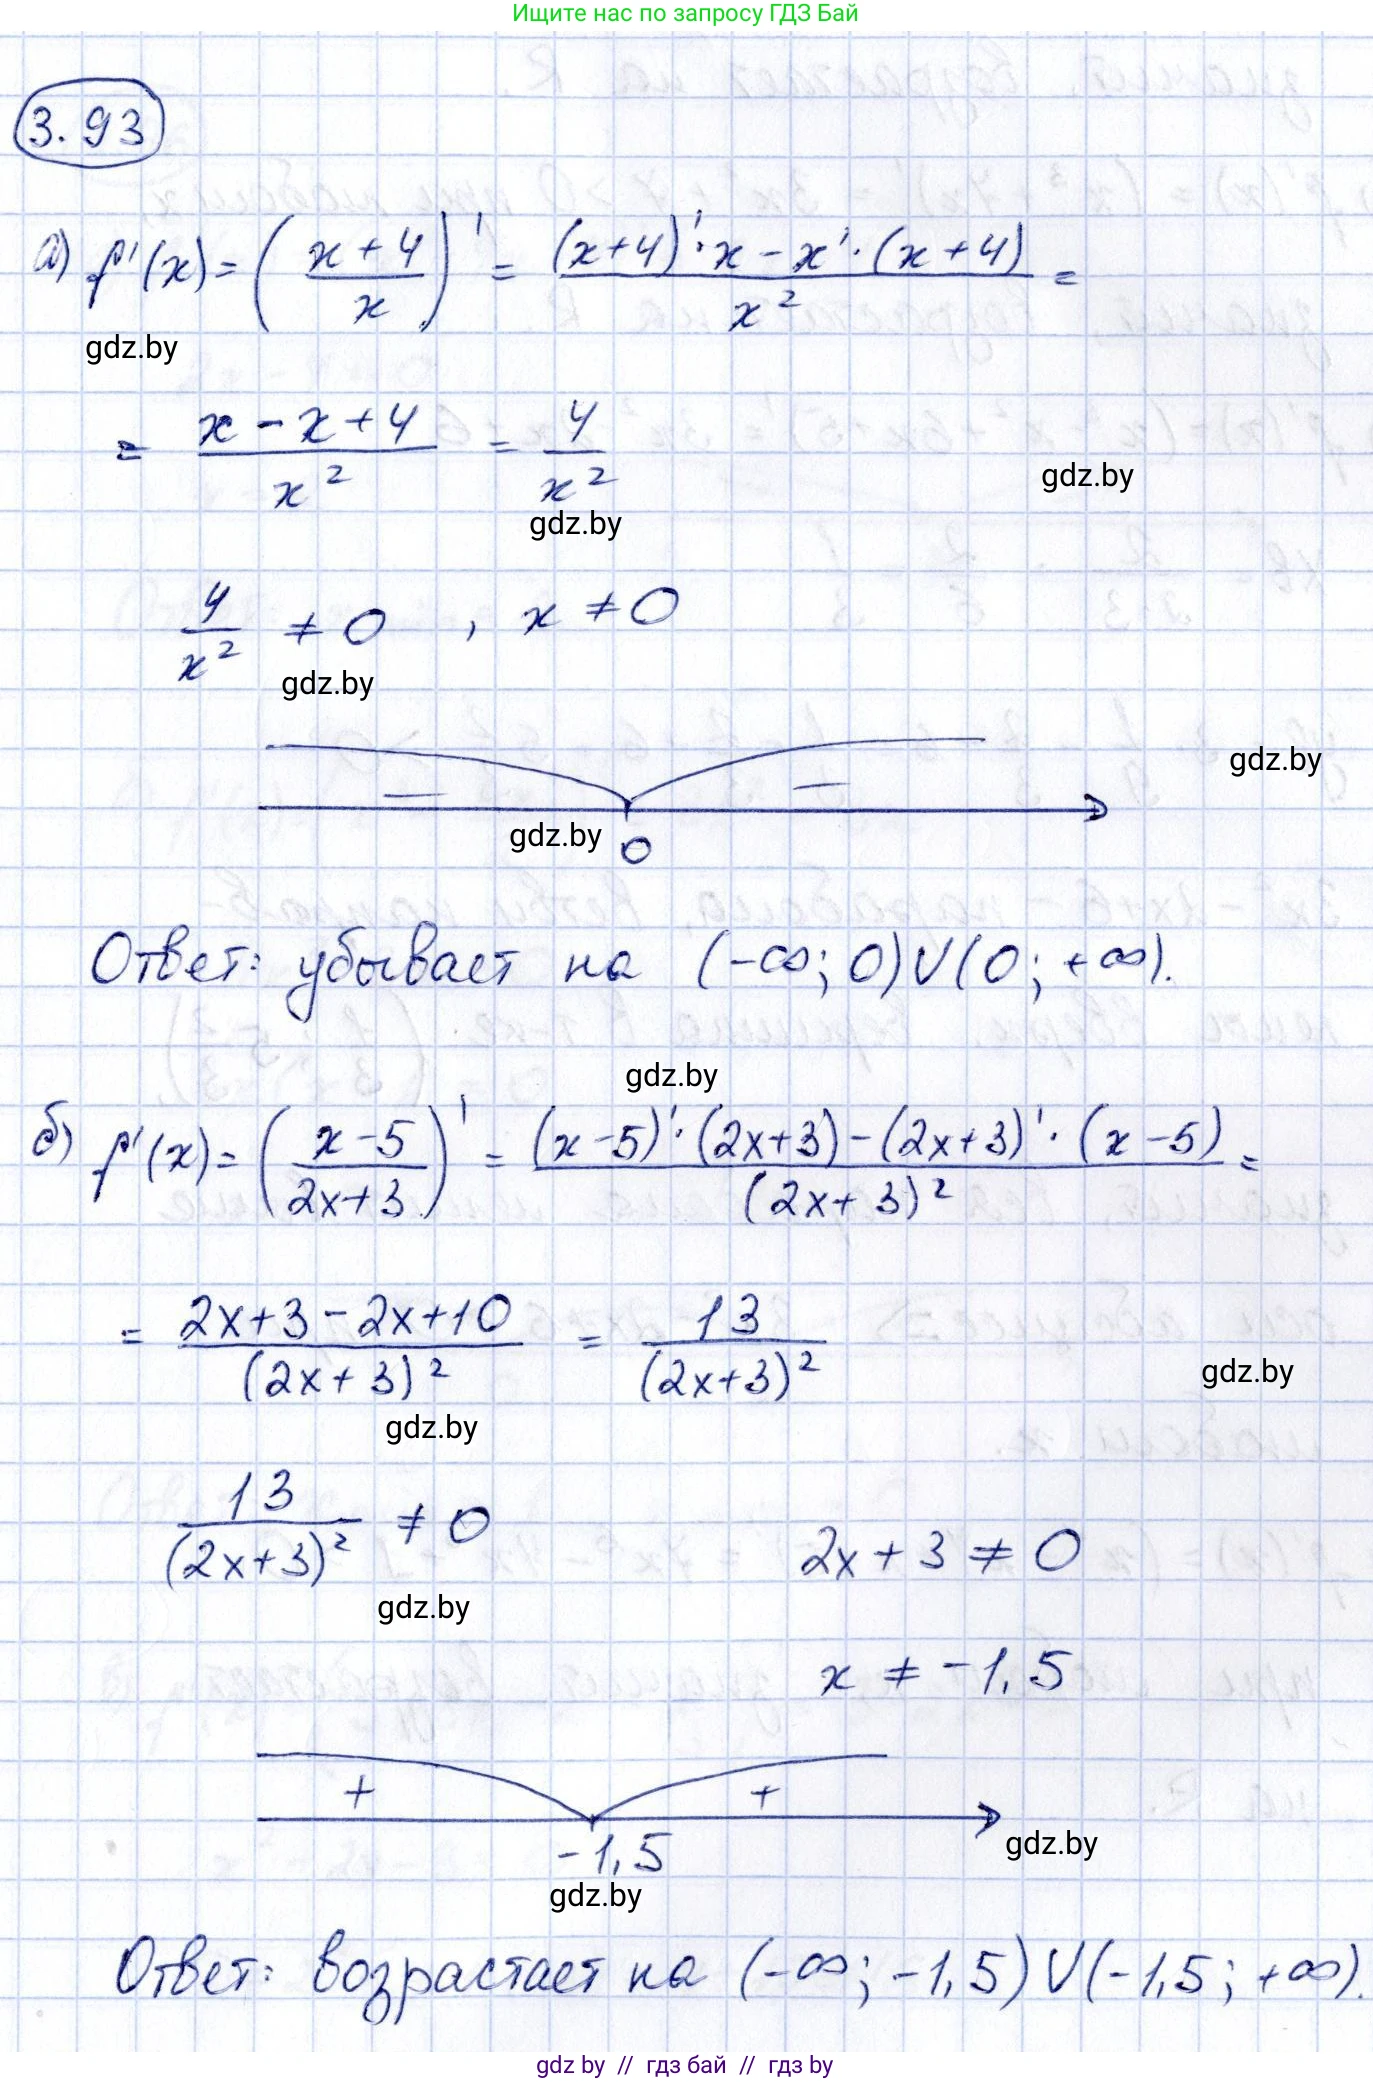 Ищите нас по запросу ГДЗ Бай
3.93
а) f'(x) = ( (x + 4) / x )' = ( (x+4)'·x − x'·(x+4) ) / x² =
gdz.by
= (x − x + 4) / x² = 4 / x²
gdz.by
gdz.by
4 / x² ≠ 0 , x ≠ 0
gdz.by
gdz.by
− −
gdz.by
0
Ответ: убывает на (-∞; 0)∪(0; +∞).
gdz.by
б) f'(x) = ( (x − 5) / (2x+3) )' = ( (x−5)'·(2x+3) − (2x+3)'·(x−5) ) / (2x+3)² =
= (2x+3 − 2x+10) / (2x+3)² = 13 / (2x+3)²
gdz.by
gdz.by
13 / (2x+3)² ≠ 0 2x + 3 ≠ 0
gdz.by
x ≠ -1,5
+ +
gdz.by
-1,5
gdz.by
Ответ: возрастает на (-∞; -1,5)∪(-1,5; +∞).
gdz by // гдз бай // гдз by